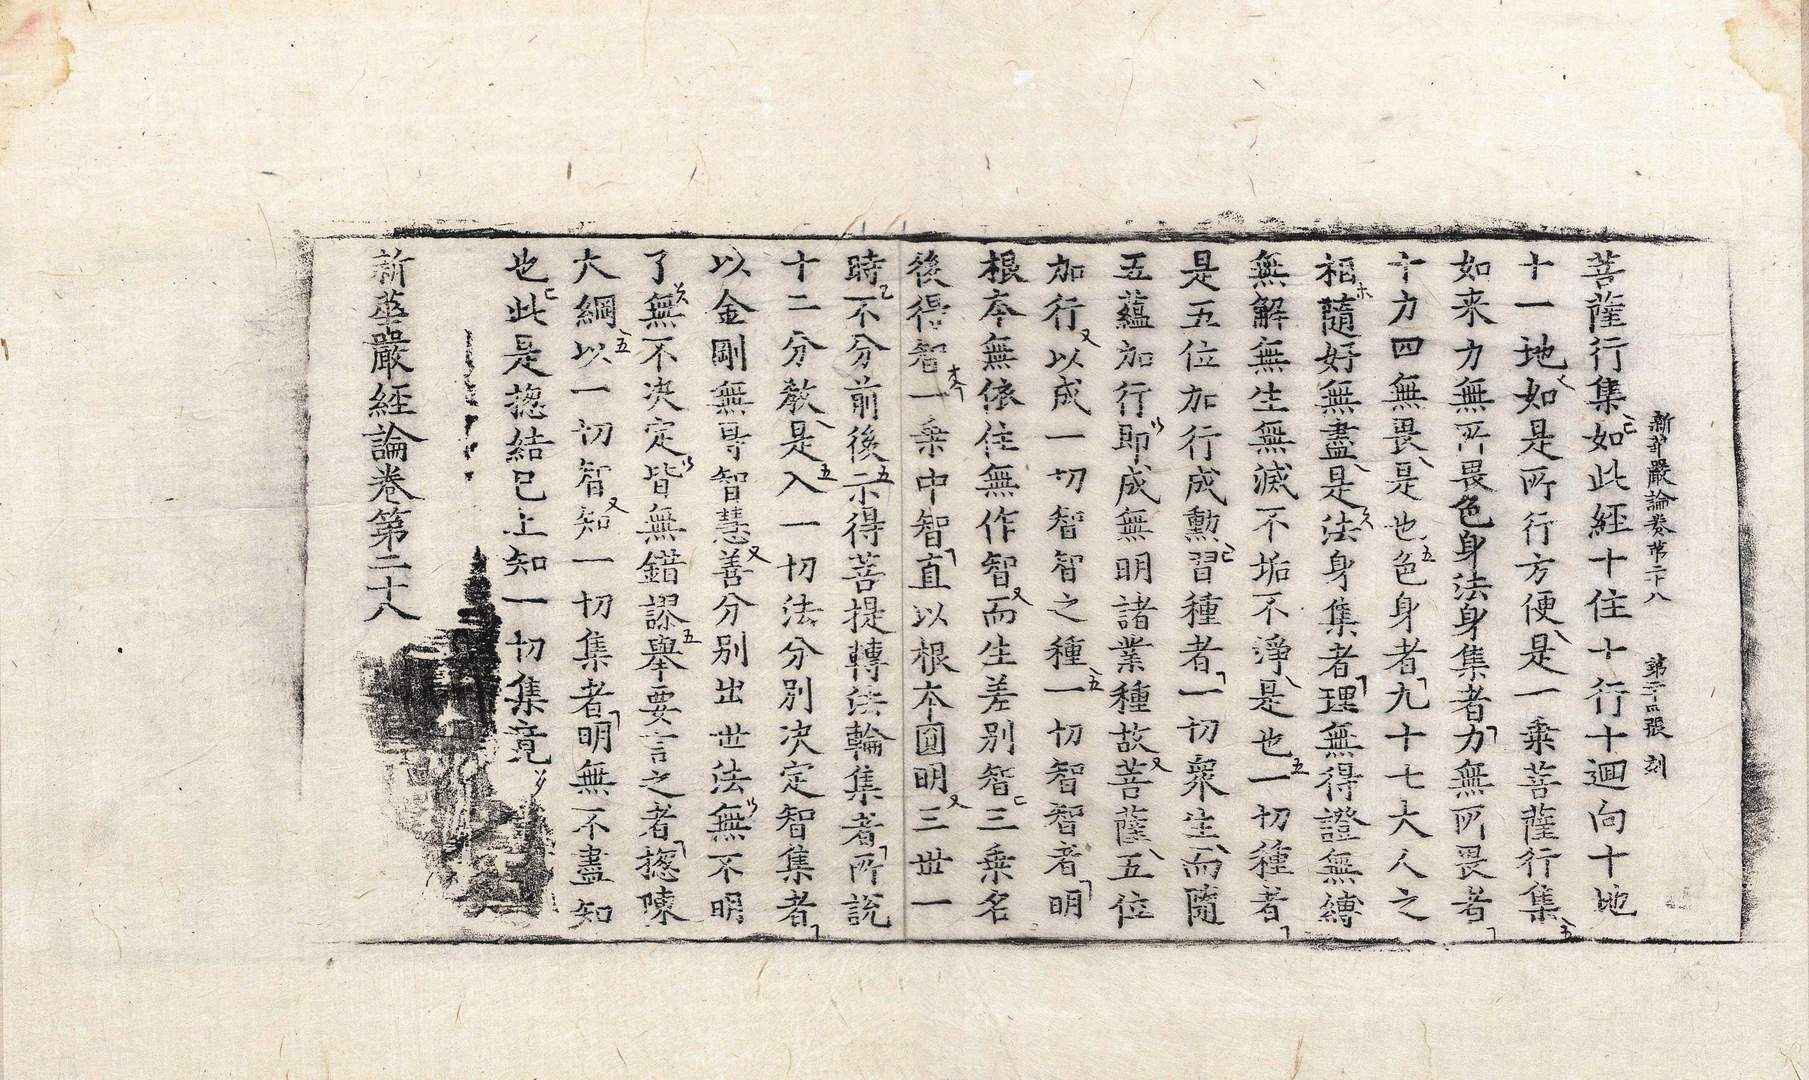 新華嚴論卷第二十八　第二十四張　刻
菩薩行集如此經十住十行十迴向十地
十一地如是所行方便是一乗菩薩行集
如来力無所畏色身法身集者力無所畏者
十力四無畏是也色身者九十七大人之
相隨好無盡是法身集者理無得證無縛
無解無生無滅不垢不淨是也一切種者
是五位加行成勳習種者一切衆生而隨
五蘊加行即成無明諸業種故菩薩五位
加行以成一切智智之種一切智智者明
根本無依住無作智而生差別智三乗名
後得智一乗中智直以根本圓明三世一
時不分前後示得菩提轉法輪集者所說
十二分教是入一切法分別决定智集者
以金剛無㝵智慧善分別出世法無不明
了無不决定皆無錯謬舉要言之者揔陳
大綱以一切智知一切集者明無不盡知
也此是揔結已上知一切集竟
新華嚴經論卷第二十八